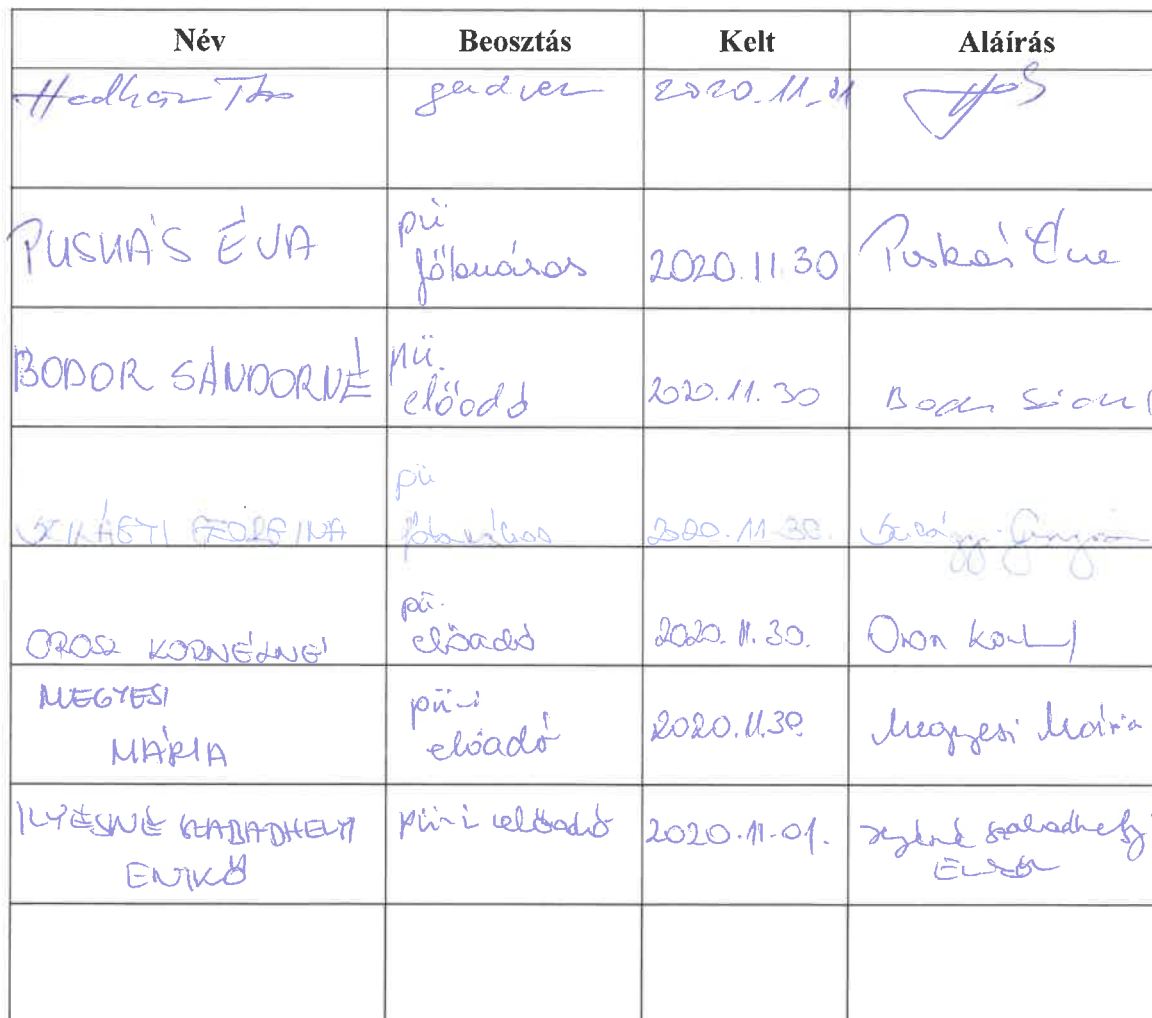 Név Beosztás Kelt Aláírás
2020.11.01
PUSKÁS ÉVA pü főtanácsos 2020.11.30 Puskás Éva
BODOR SÁNDORNÉ pü. előadó 2020.11.30
SZILÁGYI GEORGINA pü főtanácsos 2020.11.30. Szilágyi
OROSZ KORNÉLNÉ pü. előadó 2020.11.30. Orosz
MEGYESI
MÁRIA pü-i előadó 2020.11.30 Megyesi Mária
ILYÉSNÉ SZABADHELYI
ENIKŐ pü-i előadó 2020.11.01. szabadhelyi